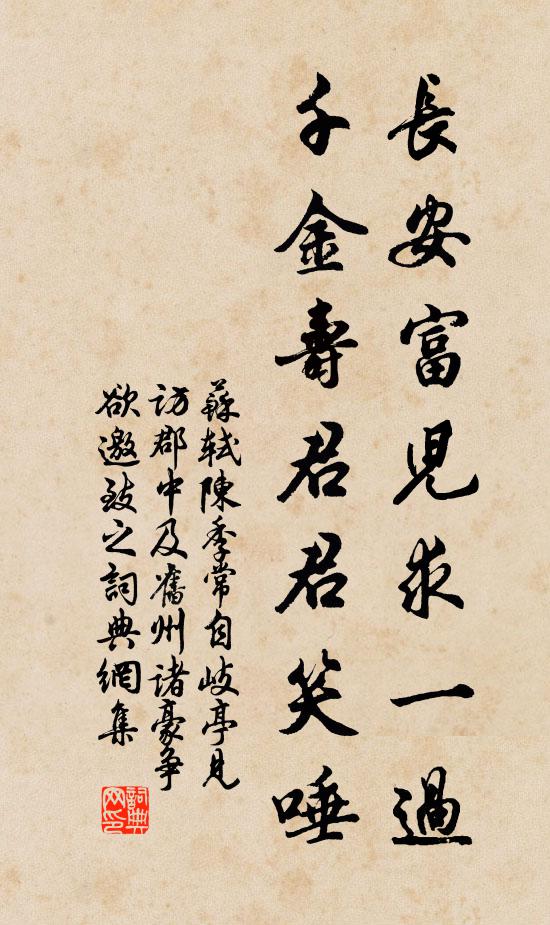 長安富兒求一過
千金壽君君笑唾
蘇軾陳季常自岐亭見
訪郡中及舊州諸豪爭
欲邀致之詞典網集
詞典
网印